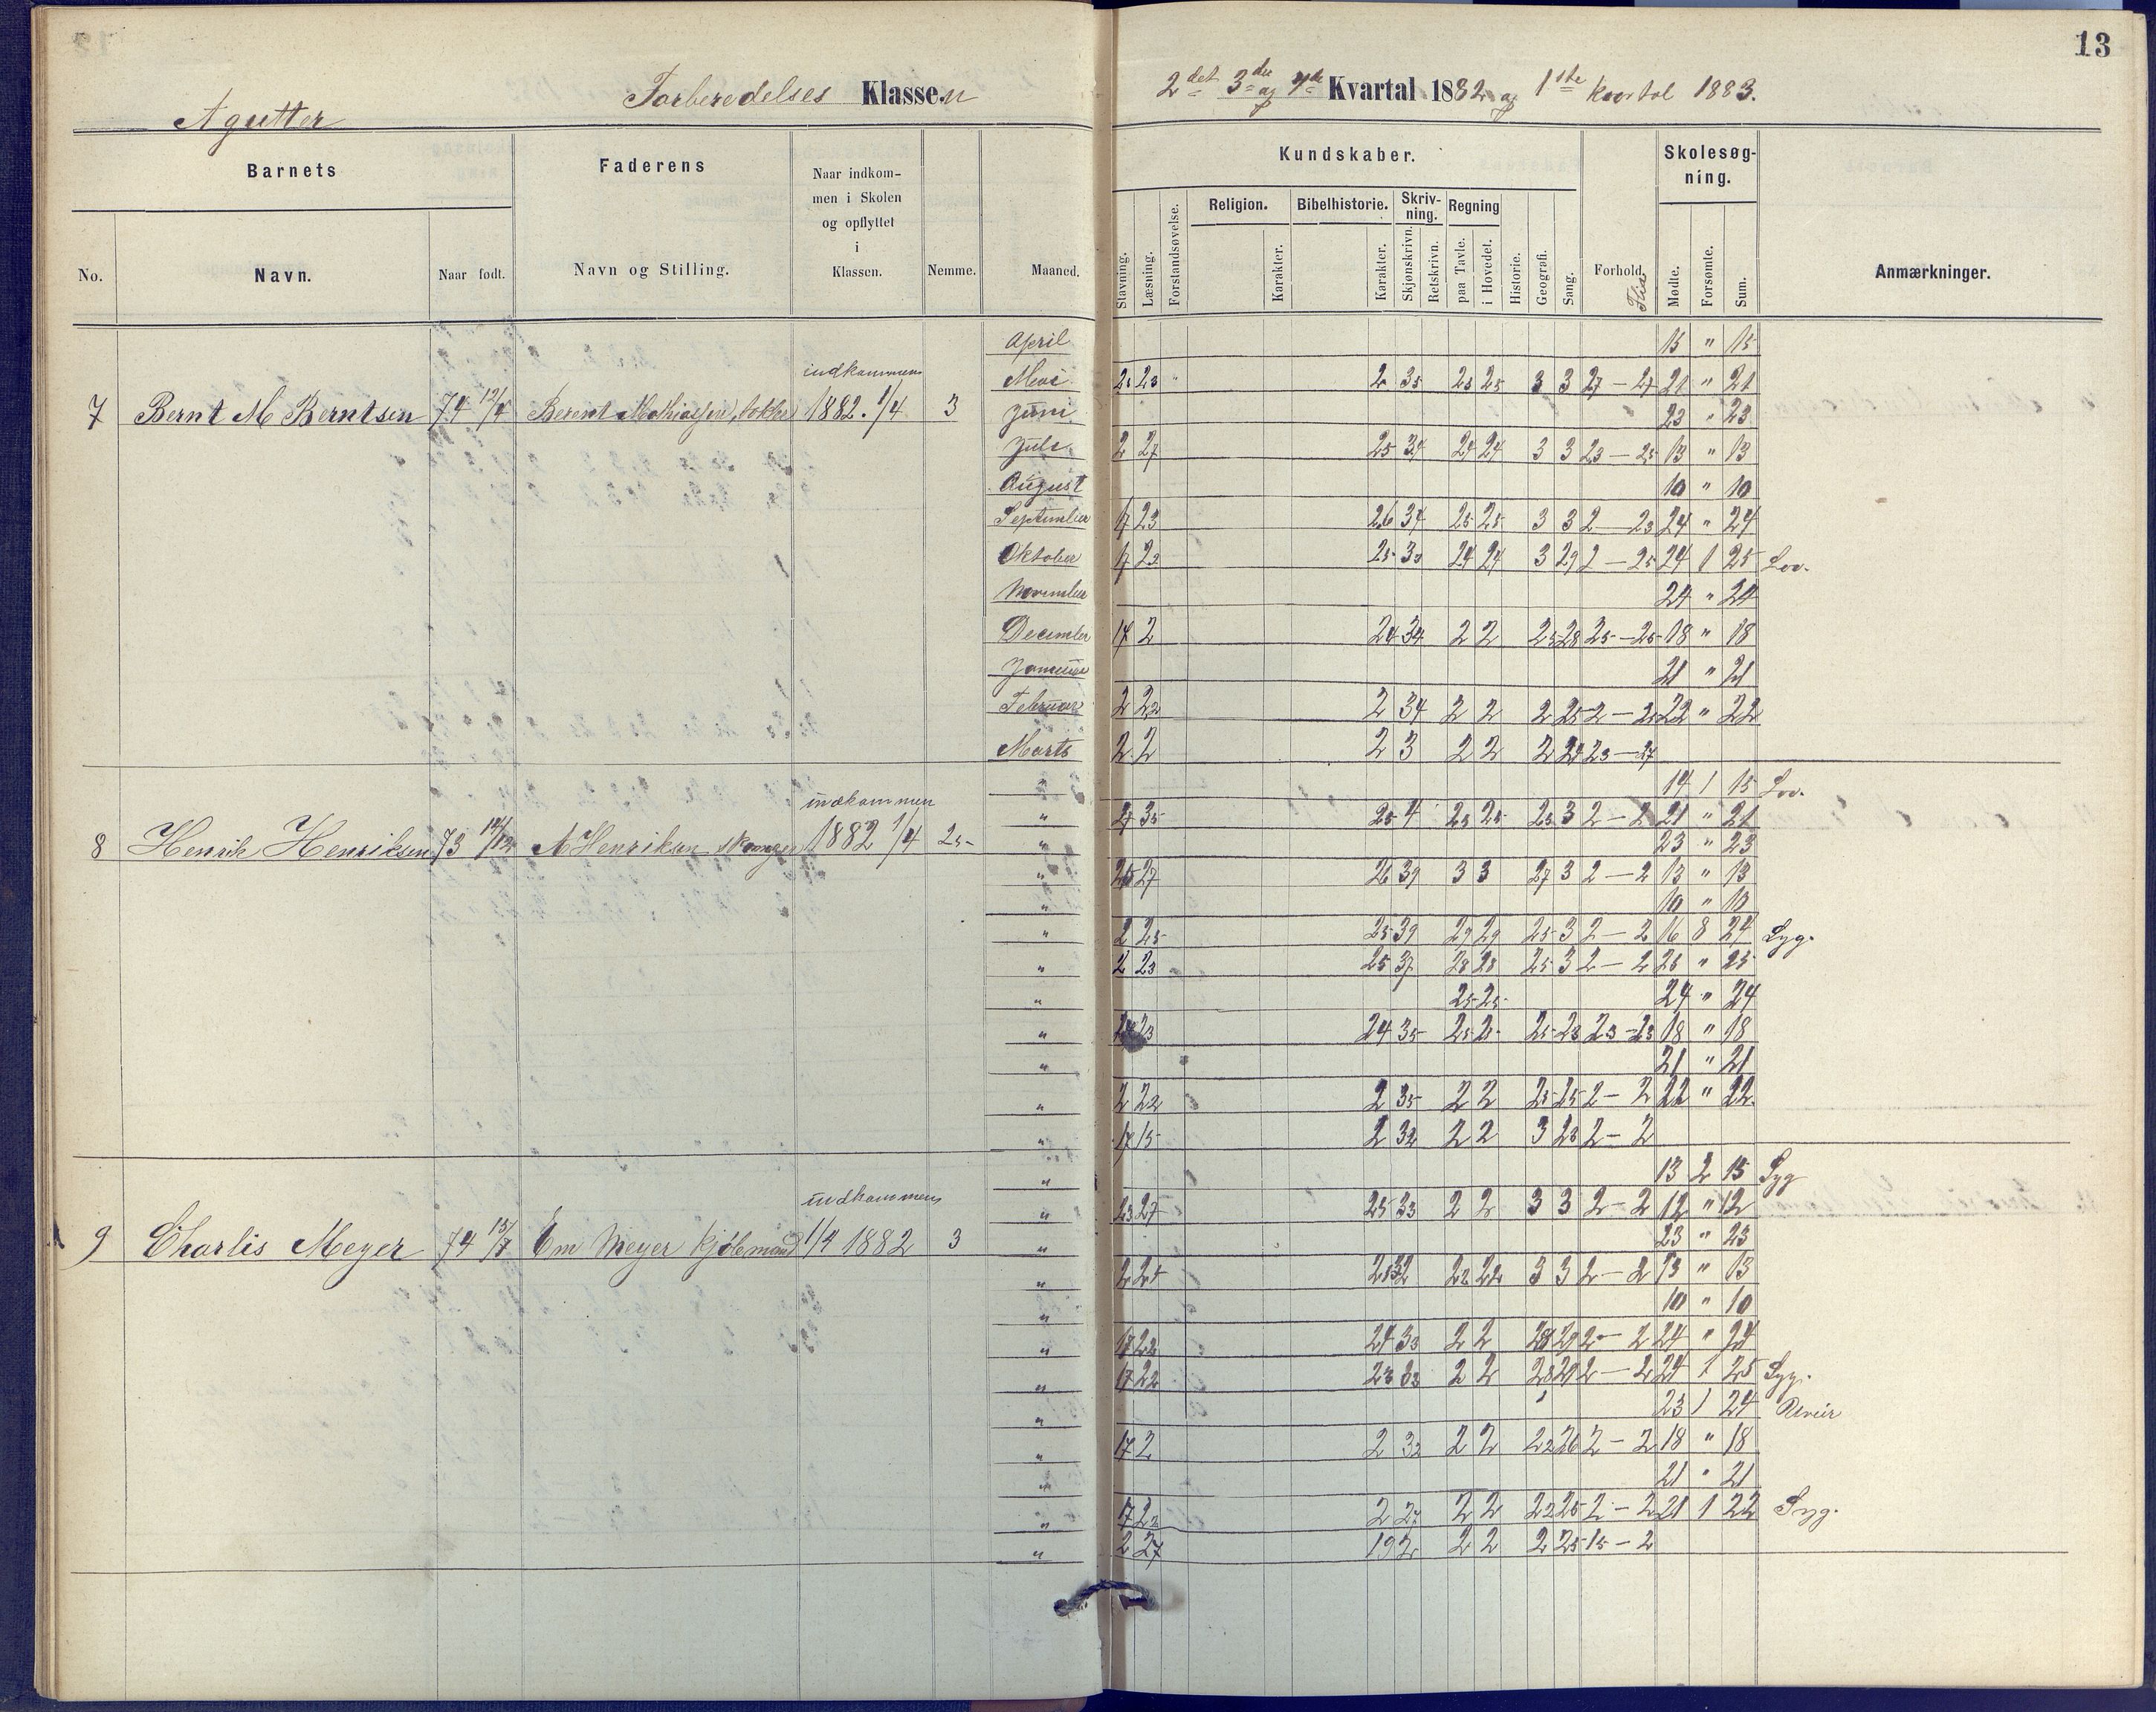 13
Forberedelses Klassen
2det 3die og 4de Kvartal 1882 og 1ste Kvartal 1883.
A gutter
Barnets
Faderens
Naar indkom-
men i Skolen
og opflyttet
i
Klassen.
No.
Navn.
Naar født.
Navn og Stilling.
Nemme.
Maaned.
Kundskaber.
Skolesøg-
ning.
Religion.
Bibelhistorie.
Skriv-
ning.
Regning
Stavning.
Læsning.
Forstandsøvelse.
Karakter.
Karakter.
Skjønskrivn.
Retskrivn.
paa Tavle.
i Hovedet.
Historie.
Geografi.
Sang.
Forhold.
Flid
Mødte.
Forsømte.
Sum.
Anmærkninger.
April 15 " 15
Mai 21 " 21
indkommen
7 Bernt M Berntsen 74 12/4 1882. 1/4 3
Juni 23 " 23
Juli 2 27 25 34 24 24 3 3 23 — 25 13 " 13
August 10 " 10
September 17 23 26 34 25 25 3 3 2 — 23 24 " 24
Oktober 24 24 3 29 2 — 25 24 1 25 Lov.
November 24 " 24
December 17 2 24 34 2 2 25 28 25 — 25 18 " 18
Januar 21 " 21
Februar 2 22 2 34 2 2 2 25 2 — 25 22 " 22
Marts 2 2 2 3 2 2 2 24 23 — 27
" 14 1 15 Lov.
indkommen
" 27 35 25 4 25 25 25 3 2 — 2 21 " 21
8 Henrik Henriksen 73 A Henriksen 1882 1/4 25
" 23 " 23
" 27 26 39 3 3 27 3 2 — 2 13 " 13
" 10 " 10
" 2 25 25 39 29 29 25 3 2 — 2 16 8 24 Syg.
" 2 23 25 37 28 28 25 3 2 — 2 25 " 25
" 25 25 24 " 24
" 23 24 35 25 25 25 28 23 — 23 18 " 18
" 21 " 21
" 2 22 2 35 2 2 25 25 2 — 2 22 " 22
" 17 15 2 32 2 2 3 28 2 — 2
" 13 2 15 Syg
indkommen
" 23 27 25 33 2 2 3 3 2 — 2 12 " 12
9 Charlis Meyer 74 Em Meyer Kjøbmand 1/4 1882 3
" 23 " 23
" 22 22 3 3 2 — 2 13 " 13
" 10 " 10
" 17 22 24 33 2 2 28 29 2 — 2 24 " 24
" 17 22 23 33 2 2 28 29 2 — 2 24 1 25 Syg.
" 23 1 24 Uveir
" 17 2 2 32 2 2 22 26 2 — 2 18 " 18
" 21 " 21
" 17 22 2 27 2 2 22 25 2 — 2 21 1 22 Syg.
" 2 27 19 2 2 2 2 25 15 — 2